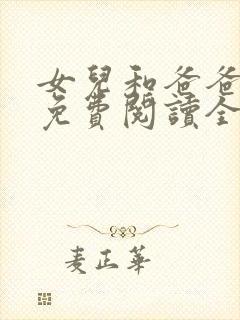 女兒和爸爸
免費閱讀全
麦正華